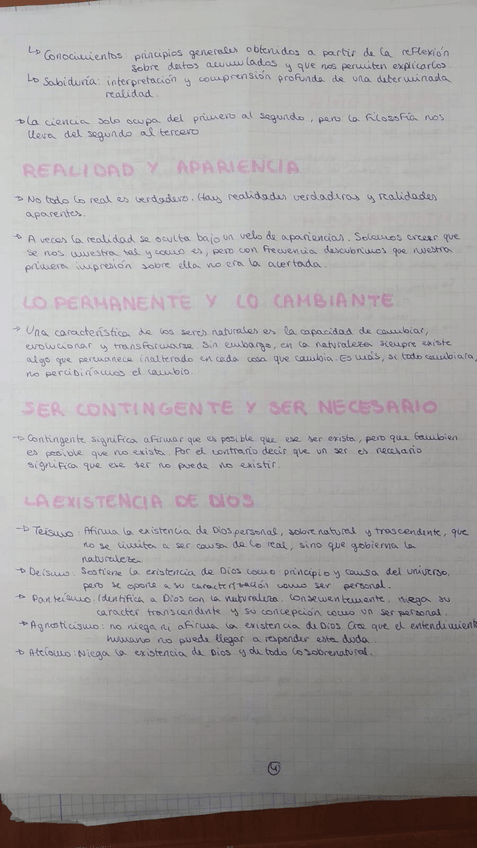 ↳ Conocimientos: principios generales obtenidos a partir de la reflexión
sobre datos acumulados y que nos permiten explicarlos.
↳ Sabiduría: interpretación y comprensión profunda de una determinada
realidad.
→ La ciencia solo ocupa del primero al segundo, pero la filosofía nos
lleva del segundo al tercero
REALIDAD Y APARIENCIA
→ No todo lo real es verdadero. Hay realidades verdaderas y realidades
aparentes.
→ A veces la realidad se oculta bajo un velo de apariencias. Solemos creer que
se nos muestra tal y como es, pero con frecuencia descubrimos que nuestra
primera impresión sobre ella no era la acertada.
LO PERMANENTE Y LO CAMBIANTE
→ Una característica de los seres naturales es la capacidad de cambiar,
evolucionar y transformarse. Sin embargo, en la naturaleza siempre existe
algo que permanece inalterado en cada cosa que cambia. Es más, si todo cambiara,
no percibiríamos el cambio.
SER CONTINGENTE Y SER NECESARIO
→ Contingente significa afirmar que es posible que ese ser exista, pero que también
es posible que no exista. Por el contrario decir que un ser es necesario
significa que ese ser no puede no existir.
LA EXISTENCIA DE DIOS
→ Teísmo: Afirma la existencia de Dios personal, sobrenatural y trascendente, que
no se limita a ser causa de lo real, sino que gobierna la
naturaleza
→ Deísmo: Sostiene la existencia de Dios como principio y causa del universo,
pero se opone a su caracterización como ser personal.
→ Panteísmo: Identifica a Dios con la naturaleza. Consecuentemente, niega su
caracter transcendente y su concepción como un ser personal.
→ Agnosticismo: no niega ni afirma la existencia de Dios. Cree que el entendimiento
humano no puede llegar a responder esta duda.
→ Ateísmo: Niega la existencia de Dios y de todo lo sobrenatural.
4